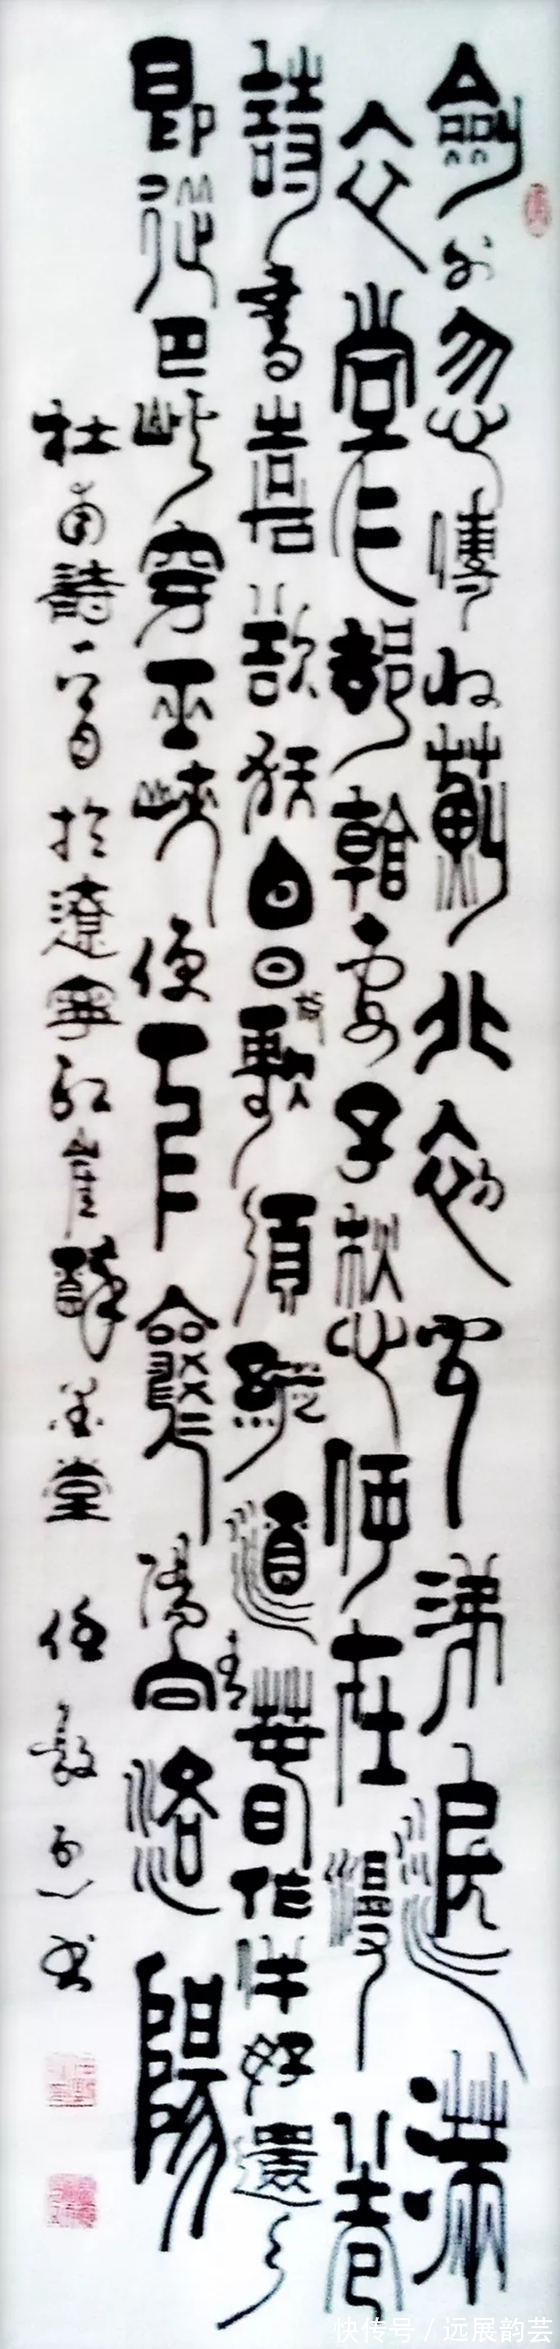 劍外忽傳收薊北初聞涕淚滿
衣裳卻看妻子愁何在漫卷
詩書喜欲狂白日放歌須縱酒青春作伴好還乡
即從巴峽穿巫峽便下襄陽向洛陽
杜甫詩一首於遼寧紅崖醉墨堂 任 书
快传号 / 远展韵芸